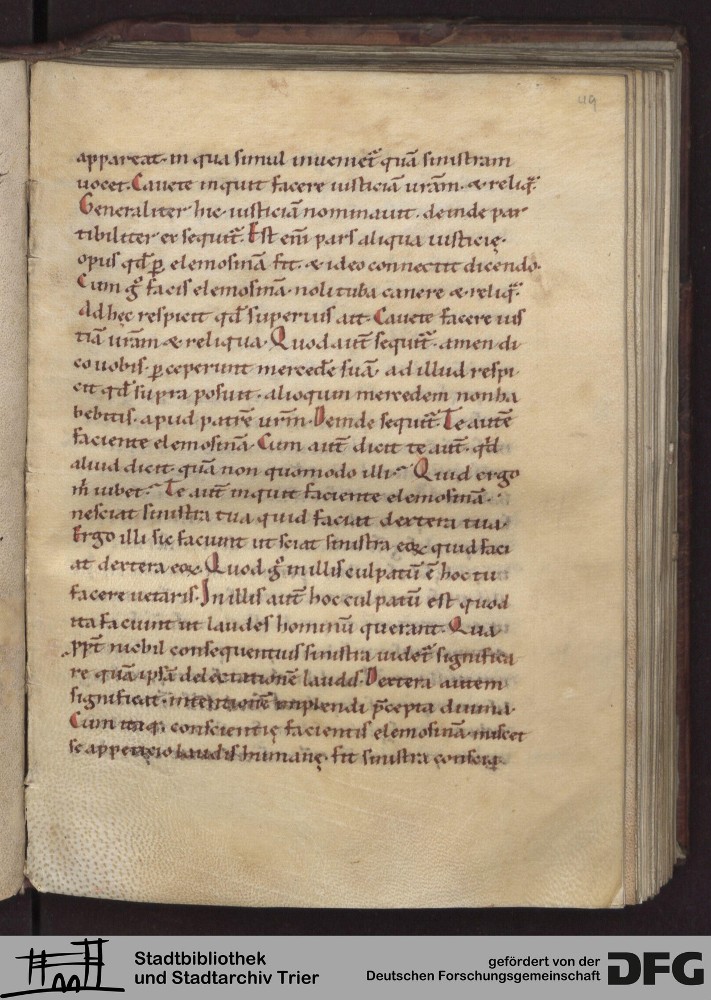 49
appareat· in qua simul inuenietr̃ quã sinistram
uocet. Cauete inquit facere iusticiã urãm· & reliq̃·
Generaliter hic iusticiã nominauit· deinde par
tibiliter exsequitr̃. Est enĩ pars aliqua iusticię·
opus qd̃ ꝑ elemosinã fit· & ideo connectit dicendo·
Cum g̃ facis elemosinã· noli tuba canere & reliq̃·
Ad hęc respicit qd̃ superius ait· Cauete facere ius
tiã urãm & reliqua· Quod aut̃ sequitr̃· amen di
co uobis· ꝑceperunt mercedẽ suã· ad illud respi
cit qd̃ supra posuit· alioquin mercedem non ha
bebitis· apud patrẽ urm̃· Deinde sequitr̃· Te autẽ
faciente elemosinã· Cum aut̃ dicit te aut̃· qd̃
aliud dicit quã non quomodo illi· Quid ergo
m̃ iubet· Te aut̃ inquit faciente elemosinã·
nesciat sinistra tua quid faciat dextera tua·
Ergo illi sic faciunt ut sciat sinistra eoꝝ quid faci
at dextera eoꝝ. Quod g̃ in illis culpatũ ẽ hoc tu
facere uetaris. In illis aut̃ hoc culpatũ est quod
ita faciunt ut laudes hominũ querant· Qua
ppt̃ nichil consequentius sinistra uidetr̃ significa
re quã ipsã delectationẽ laudis· Dextera autem
significat· intentionẽ implendi p̃cepta diuina·
Cum itaq; conscientię facientis elemosinã miscet
se appeticio laudis humanę· fit sinistra
Stadtbibliothek
und Stadtarchiv Trier
gefördert von der
Deutschen Forschungsgemeinschaft
DFG